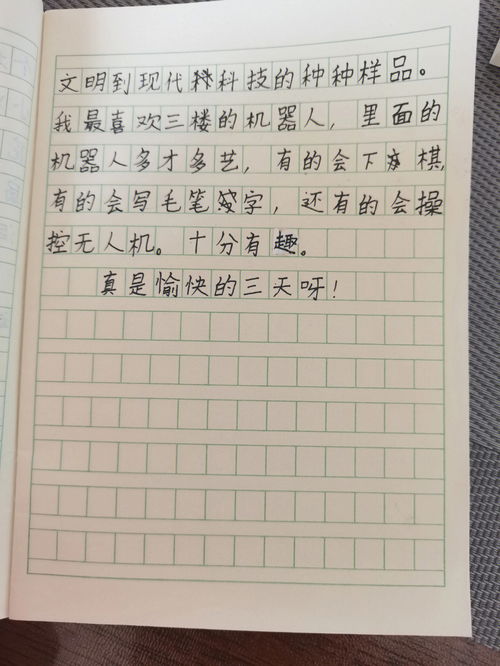 文明到现代科技的种种样品。
我最喜欢三楼的机器人，里面的
机器人多才多艺，有的会下棋，
有的会写毛笔字，还有的会操
控无人机。十分有趣。
真是愉快的三天呀！